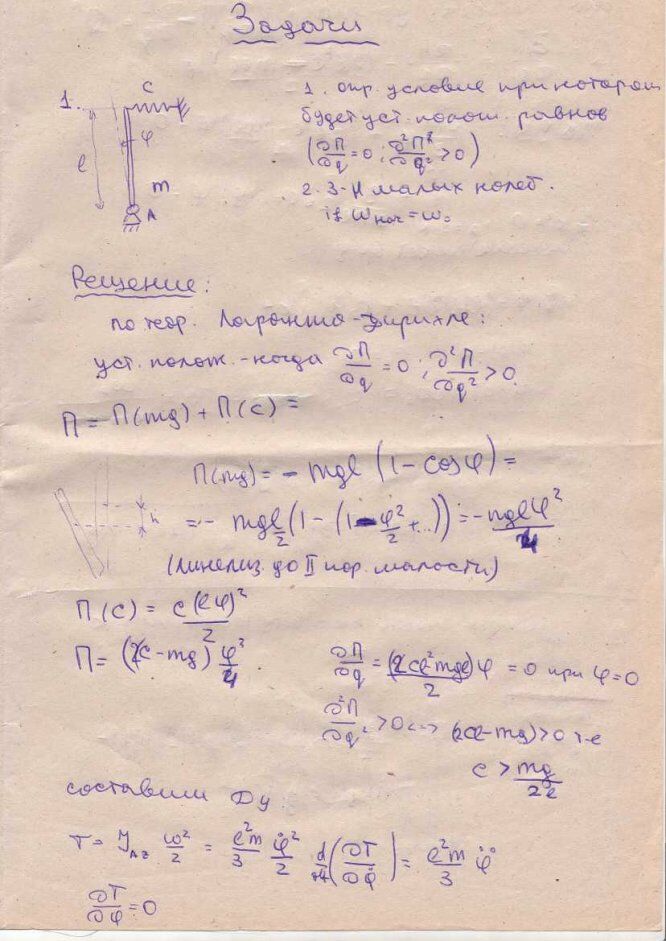 Задачи
1.
C
φ
l
m
A
1. опр. условие при котором
будет уст. полож. равнов
(∂П/∂q = 0; ∂²П/∂q² > 0)
2. З-Н малых колеб.
if ω нач = ω₀
Решение:
по теор. Лагранжа-Дирихле:
уст. полож. - когда ∂П/∂q = 0; ∂²П/∂q² > 0.
П = П(mg) + П(c) =
П(mg) = - mgl (1 - cosφ) =
h
= - mgl/2 (1 - (1 - φ²/2 + ..)) = - mglφ²/4
(линелиз. до II пор. малости)
П(c) = c(lφ)²/2
П = (2c - mg) φ²/4
∂П/∂q = (2cl² mgl)/2 φ = 0 при φ = 0
∂²П/∂q² > 0 <-> (2cl - mg) > 0 т-е
c > mg/2l
составим Ду:
T = J_Az ω²/2 = l²m/3 φ̇²/2 d/dt(∂T/∂φ̇) = l²m/3 φ̈
∂T/∂φ = 0